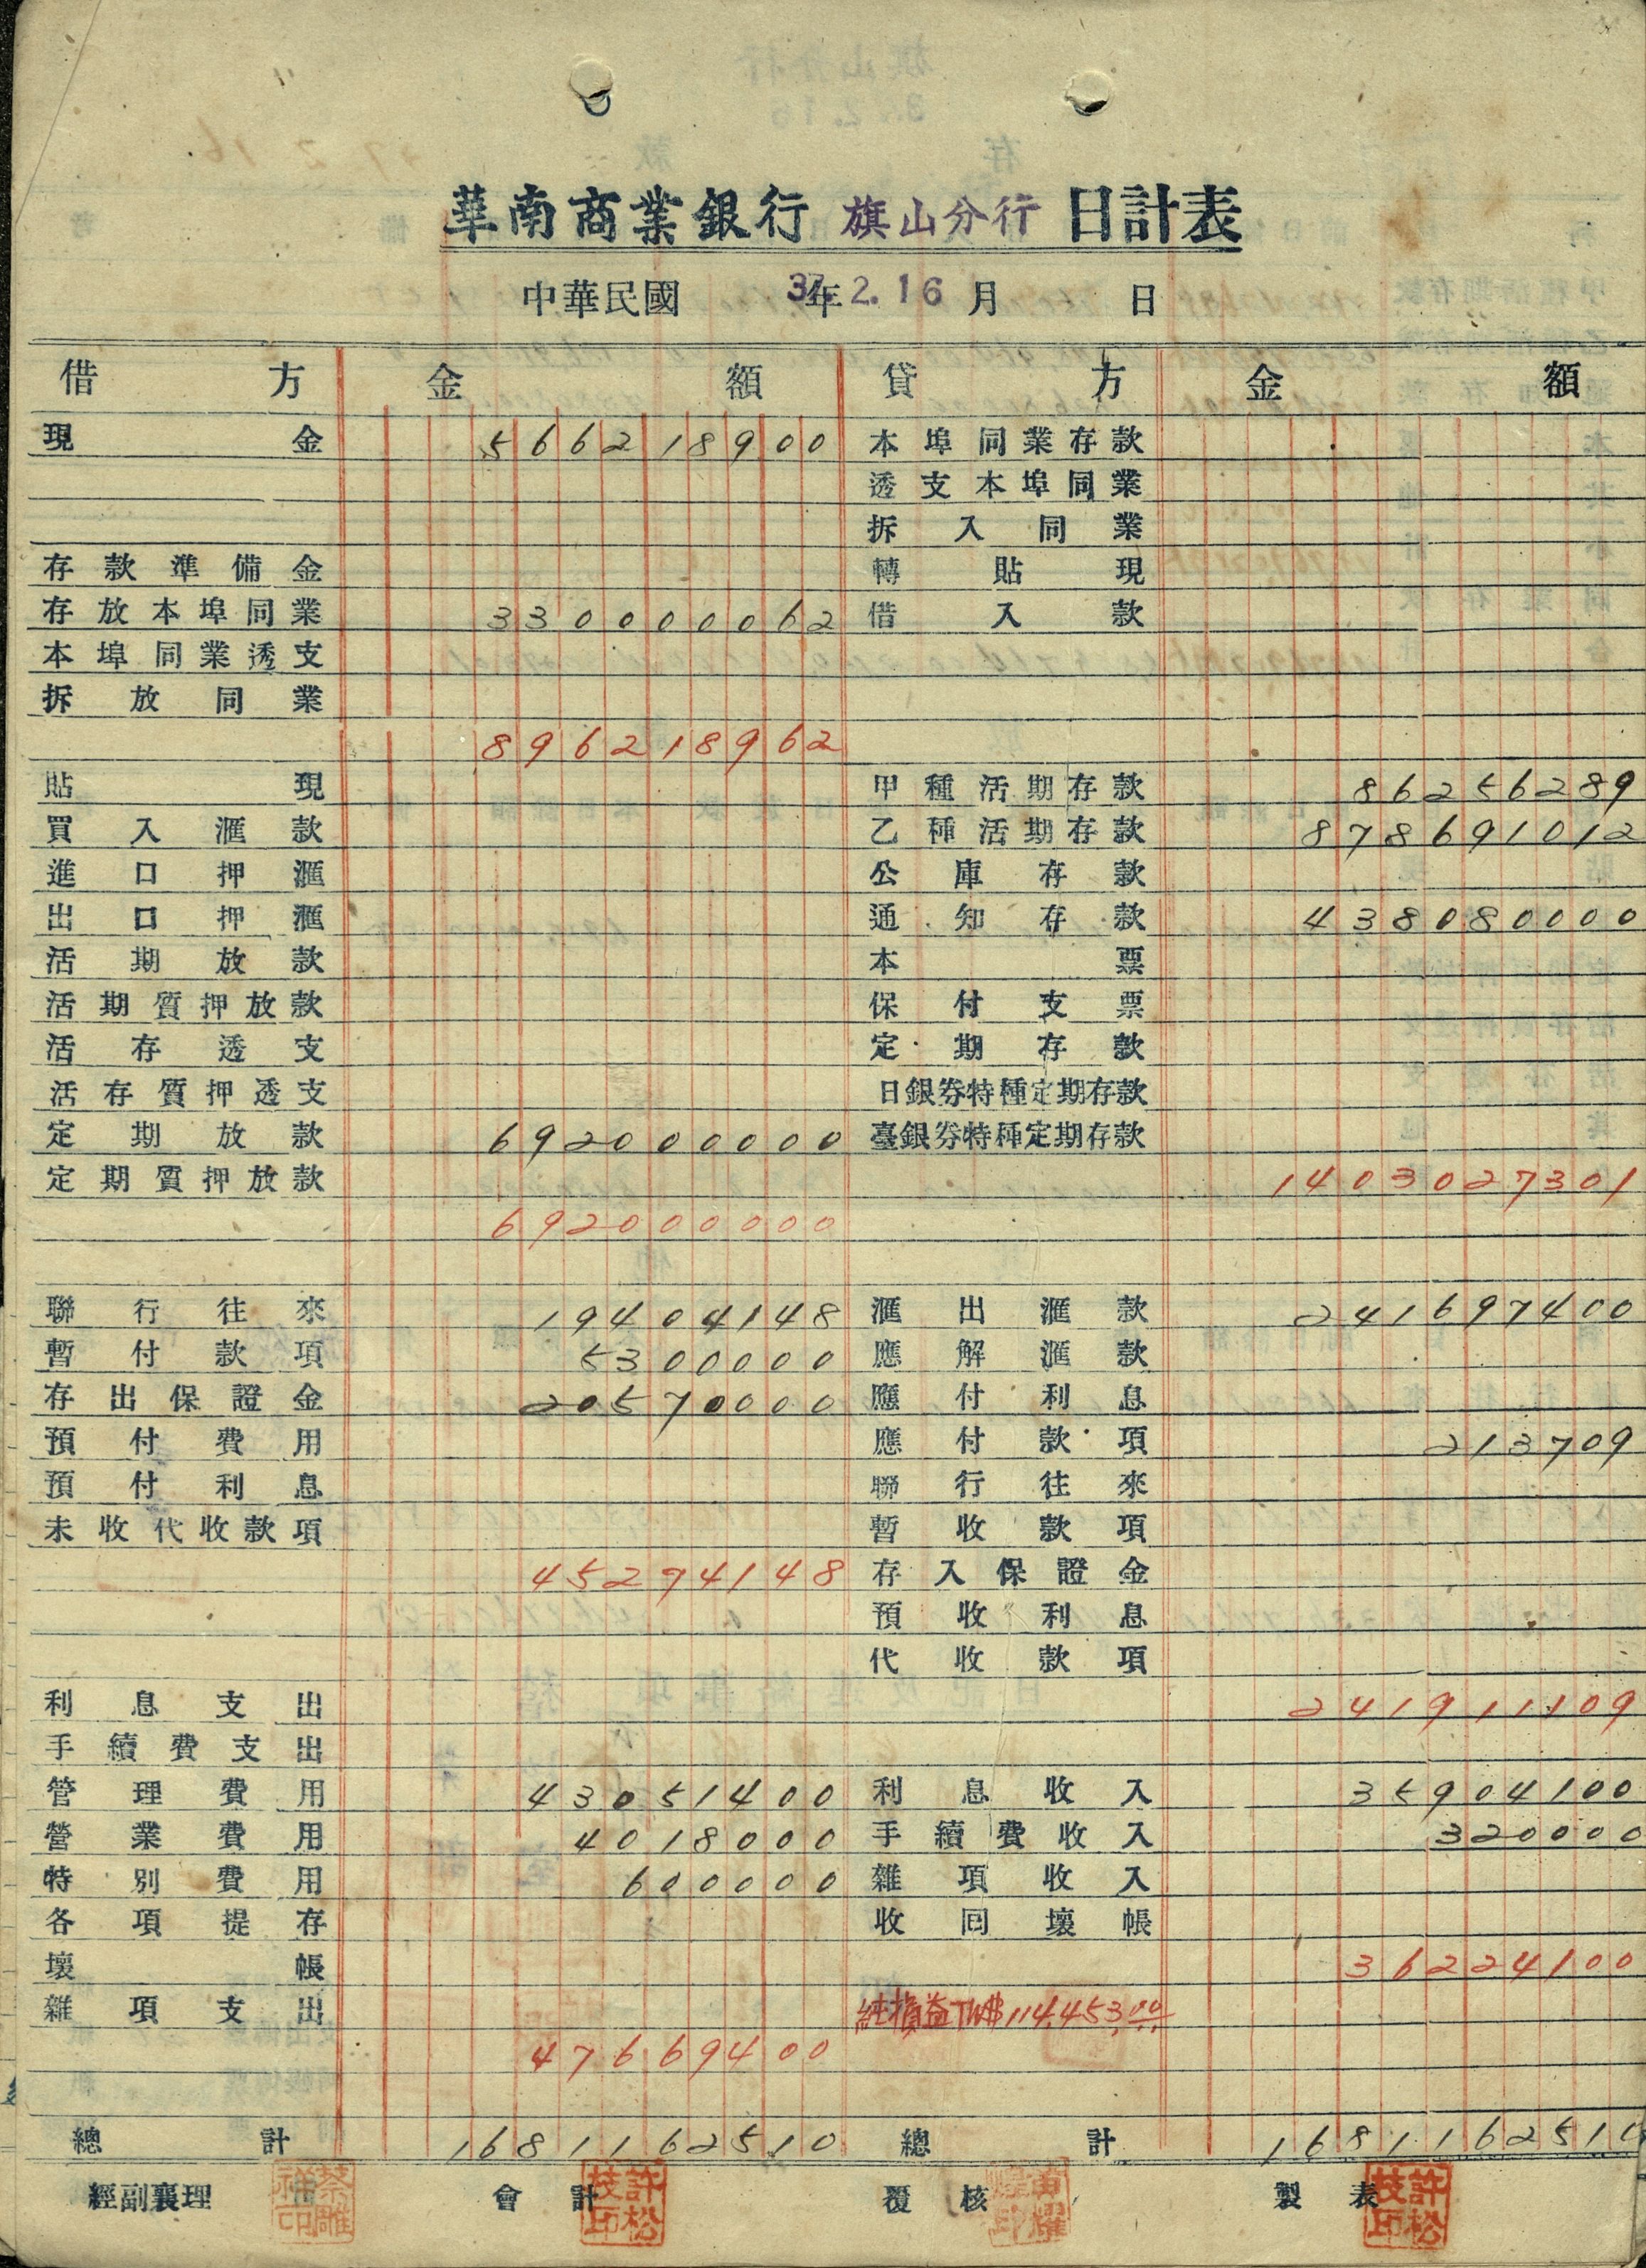 華南商業銀行 旗山分行 日計表
中華民國 37年2.16 月 日
借方 金額 貸方 金額
現金 566218900 本埠同業存款
透支本埠同業
拆入同業
存款準備金 轉貼現
存放本埠同業 330000062 借入款
本埠同業透支
拆放同業
896218962
貼現 甲種活期存款 86256289
買入滙款 乙種活期存款 878691012
進口押滙 公庫存款
出口押滙 通知存款 438080000
活期放款 本票
活期質押放款 保付支票
活存透支 定期存款
活存質押透支 日銀券特種定期存款
定期放款 692000000 臺銀券特種定期存款
定期質押放款 1403027301
692000000
聯行往來 19404148 滙出滙款 241697400
暫付款項 5300000 應解滙款
存出保證金 20570000 應付利息
預付費用 應付款項 213709
預付利息 聯行往來
未收代收款項 暫收款項
45274148 存入保證金
預收利息
代收款項
利息支出 241911109
手續費支出
管理費用 43051400 利息收入 35904100
營業費用 4018000 手續費收入 320000
特別費用 600000 雜項收入
各項提存 收回壞帳
壞帳 36224100
雜項支出 純損益TW$114,453.00
47669400
總計 1681162510 總計 1681162510
經副襄理 蔡雕祥印 會計 許松枝印 覆核 製表 許松枝印